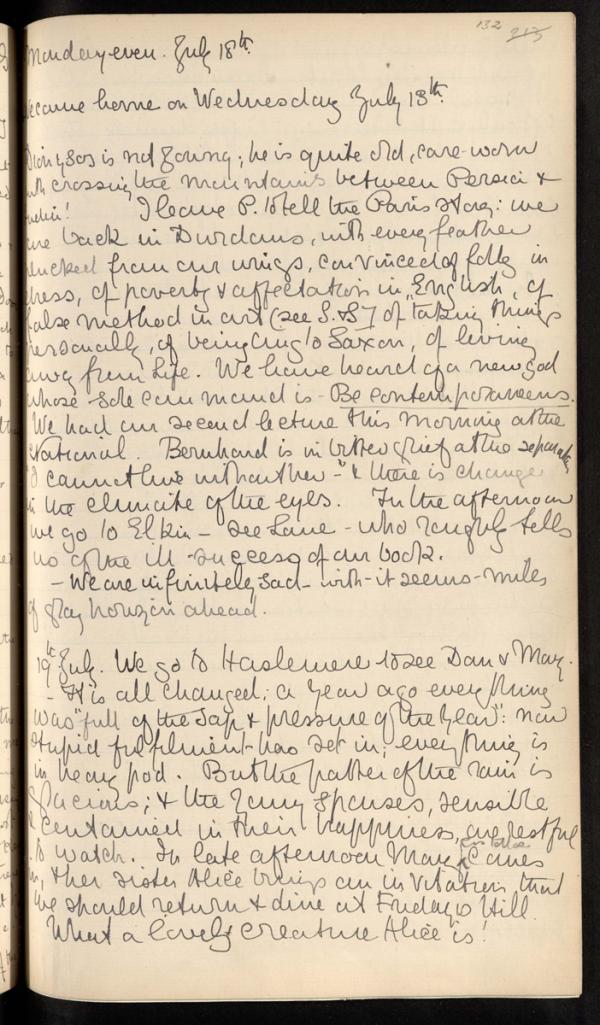 132 215
Monday even. July 18th.
We came home on Wednesday July 13th.
Dionysos is not young; he is quite old, care-worn
with crossing the mountains between Persia &
India! I leave P. to tell the Paris story: we
are back in Durdans, with every feather
plucked from our wings, convinced of folly in
dress, of poverty & affectation in "English", of
false method in art (see S. & S.) of "taking things
personally, of being Anglo Saxon, of living
away from Life. We have heard of a new god
whose sole command is - Be contemporaneous.
We had our second lecture this morning at the
National. Bernhard is in bitter grief at the separation
"I cannot live without her -" & there is change
in the climate of the eyes. In the afternoon
we go to Elkin - see Lane - who roughly tells
us of the ill-success of our book.
- We are infinitely sad - with - it seems - miles
of gray horizon ahead.
19th July. We go to Haslemere to see Dan & May.
- It is all changed; a year ago everything
was "full of the sap & pressure of the Year": now
stupid fulfilment has set in; everything is
in heavy pod. But the patter of the rain is
gracious; & the young spouses, sensible
& contained in their happiness, are restful
to watch. In late afternoon May Costelloe comes
in, & her sister Alice brings an invitation that
we should return & dine at Friday's Hill.
What a lovely creature Alice is!